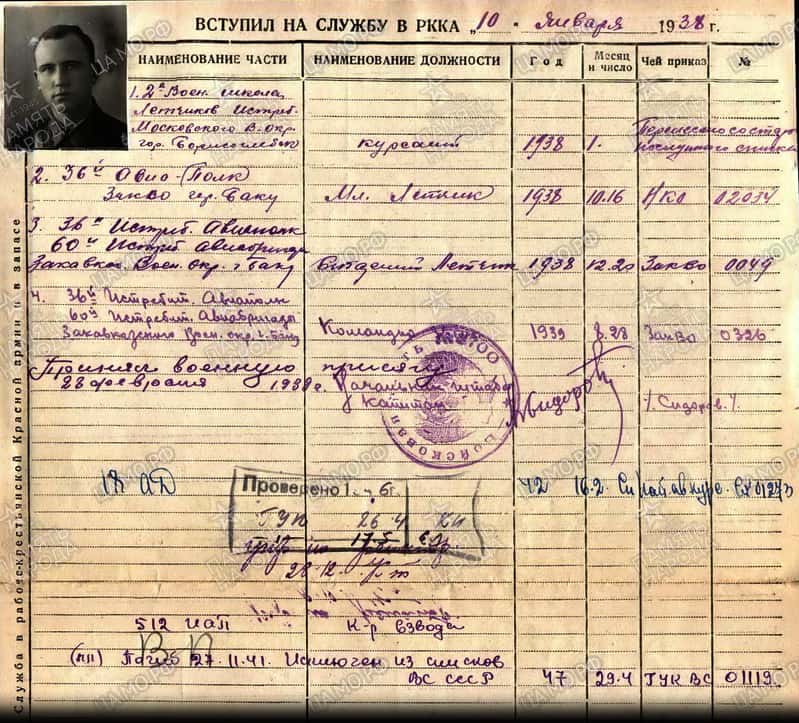 ВСТУПИЛ НА СЛУЖБУ В РККА „10" января 1938 г.
НАИМЕНОВАНИЕ ЧАСТИ НАИМЕНОВАНИЕ ДОЛЖНОСТИ Год Месяц и число Чей приказ №
1. 2ª Воен. школа
Летчиков Истреб.
Московского В. окр.
гор. Борисоглебск курсант 1938 1.
2. 36й Авио-Полк
Закво гор. Баку Мл. Летчик 1938 10.16 НКО 02034
3. 36й Истреб. Авиополк
60й Истреб. Авиобригада
Закавказ. Воен. окр. г. Баку Летчик 1938 12.20 Закво 0049
4. 36й Истребит. Авиополк
60й Истребит. Авиобригады
Закавказского Воен. окр. г. Баку Командир 1939 8.28 ЗакВо 0326
Принял военную присягу
23 февраля 1938 г. Начальник штаба
Капитан /. Сидоров. /.
ВОЙСКОВАЯ ЧАСТЬ
18 АД 42 16.2.
Проверено
ГУК 26.4
17.5
28.12.
512 ИАП К-р взвода
ВП
(пп) Погиб 27.11.41. Исключен из списков
ВС СССР 47 29.4 ГУК ВС 01119.
Служба в рабоче-крестьянской Красной армии и в запасе
ПАМЯТЬ НАРОДА
ЦАМО РФ